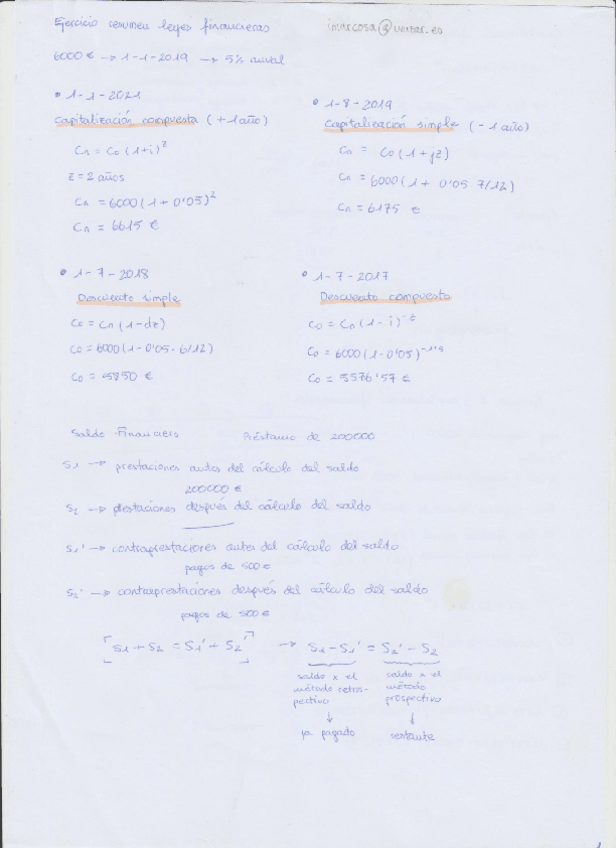 Ejercicio resumen leyes financieras
imarcosa@unizar.es
6000 € → 1-1-2019 → 5% anual
• 1-1-2021
Capitalización compuesta (+1 año)
Cn = Co (1+i)^z
z = 2 años
Cn = 6000 (1 + 0'05)^2
Cn = 6615 €
• 1-8-2019
Capitalización simple (-1 año)
Cn = Co (1 + jz)
Cn = 6000 (1 + 0'05 7/12)
Cn = 6175 €
• 1-7-2018
Descuento simple
Co = Cn (1-dz)
Co = 6000 (1-0'05·6/12)
Co = 5850 €
• 1-7-2017
Descuento compuesto
Co = Cn (1-i)^-z
Co = 6000 (1-0'05)^-1'5
Co = 5576'57 €
Saldo Financiero
Préstamo de 200000
S1 → prestaciones antes del cálculo del saldo
200000 €
S2 → prestaciones después del cálculo del saldo
S1' → contraprestaciones antes del cálculo del saldo
pagos de 500 €
S2' → contraprestaciones después del cálculo del saldo
pagos de 500 €
S1 + S2 = S1' + S2' → S1 - S1' = S2' - S2
saldo x el
método retros-
pectivo
↓
ya pagado
saldo x el
método
prospectivo
↓
restante